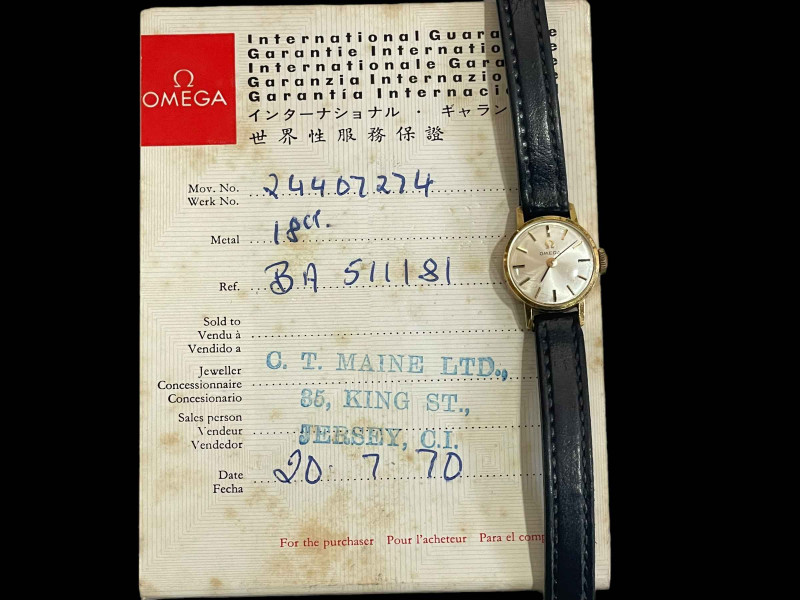 Ω
OMEGA
International Guara e
Garantie Internatio e
Internationale Gara e
Garanzia Internazio e
Garantía Internaci
インターナショナル · ギャラン
世界性服務保證
Mov. No. 24407274
Werk No.
Metal 18ct.
Ref. BA 511181
Sold to
Vendu à
Vendido a
Jeweller C. T. MAINE LTD.,
Concessionnaire
Concesionario 35, KING ST.,
Sales person
Vendeur
Vendedor JERSEY, C.I.
Date 20 7 70
Fecha
For the purchaser Pour l'acheteur Para el comp
Ω
OMEGA